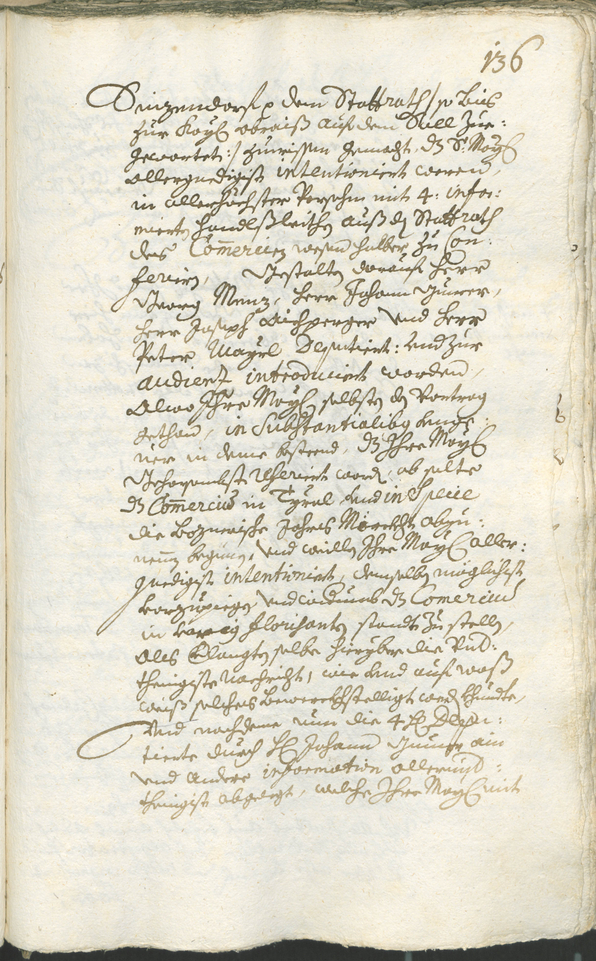 136
Sinzendorf p dem Stattrath /:so bis
zur Kays: abraiß auf dem Saal zue:
gewartet:/ zuwissen gemacht, dz S: Mays:
allergnedigist intentioniert weren,
in allerhöchster Persohn mit 4: infor:
mierten Handlsleithen auß dem Stattrath
des Comercien wesen halber zu Con:
ferirn, Gestalten darauf Herr
Georg Menz, Herr Johann Gumer,
Herr Joseph Aichperger und Herr
Peter Mayrl Deputiert: und zur
audienz introduciert worden,
Alwo Ihro Mays: selbsten den Vortrag
gethan, in Substantialibus
ner in deme besteend, dz Ihro Mays:
Gehorsambst referiert word, ob solte
dz Comercium in Tyrol und in Specie
die Boznerische Jahrs Märckht abzu:
nemen beginnen, und weillen Ihro Mays: aller:
gnedigist intentioniert, demselben möglichist
vorzubiegen, und widerumb dz Comercium
in florisanten standt zu stellen,
Als Verlangten selbe hieryber die Und:
thenigiste nachricht, wie und auf waß
weiß solches bewerckhstelligt werden khundte,
Und nachdeme nun die 4 H: Depu:
tierte durch H: Johann Gumer ain
und andere information allerund:
thenigist abgelegt, welche Ihro Mays: mit